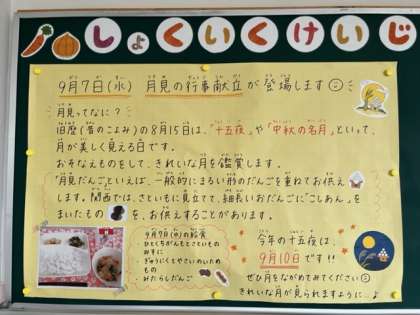 しょくいくけいじ
9月7日(水) 月見の行事献立が登場します
月見ってなに?
旧暦(昔のこよみ)の8月15日は、「十五夜」や「中秋の名月」といって、
月が美しく見える日です。
おそなえものをして、きれいな月を鑑賞します。
「月見だんご」といえば、一般的にまるい形のだんごを重ねてお供え
します。関西では、さといもに見立てて、細長いおだんごに「こしあん」を
まいたもの を、お供えすることがあります。
9月7日(水)の給食
・ひとくちがんもとさといもの
みそに
・ぎゅうにくとやさいのいため
もの
・みたらしだんご
今年の十五夜は、
9月10日です!!
ぜひ月をながめてみてください
きれいな月が見られますように…♪